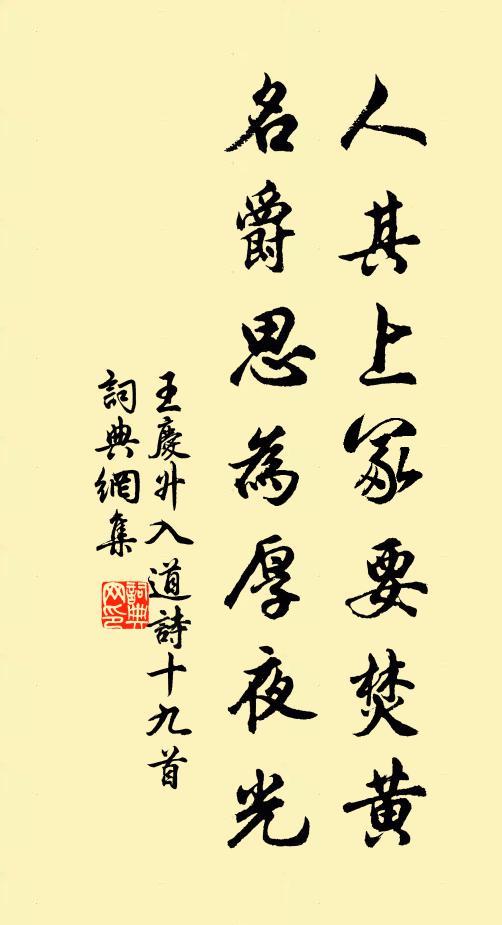 人其上冢要焚黃
名爵思為厚夜光
王慶升入道詩十九首
詞典網集
詞典網印